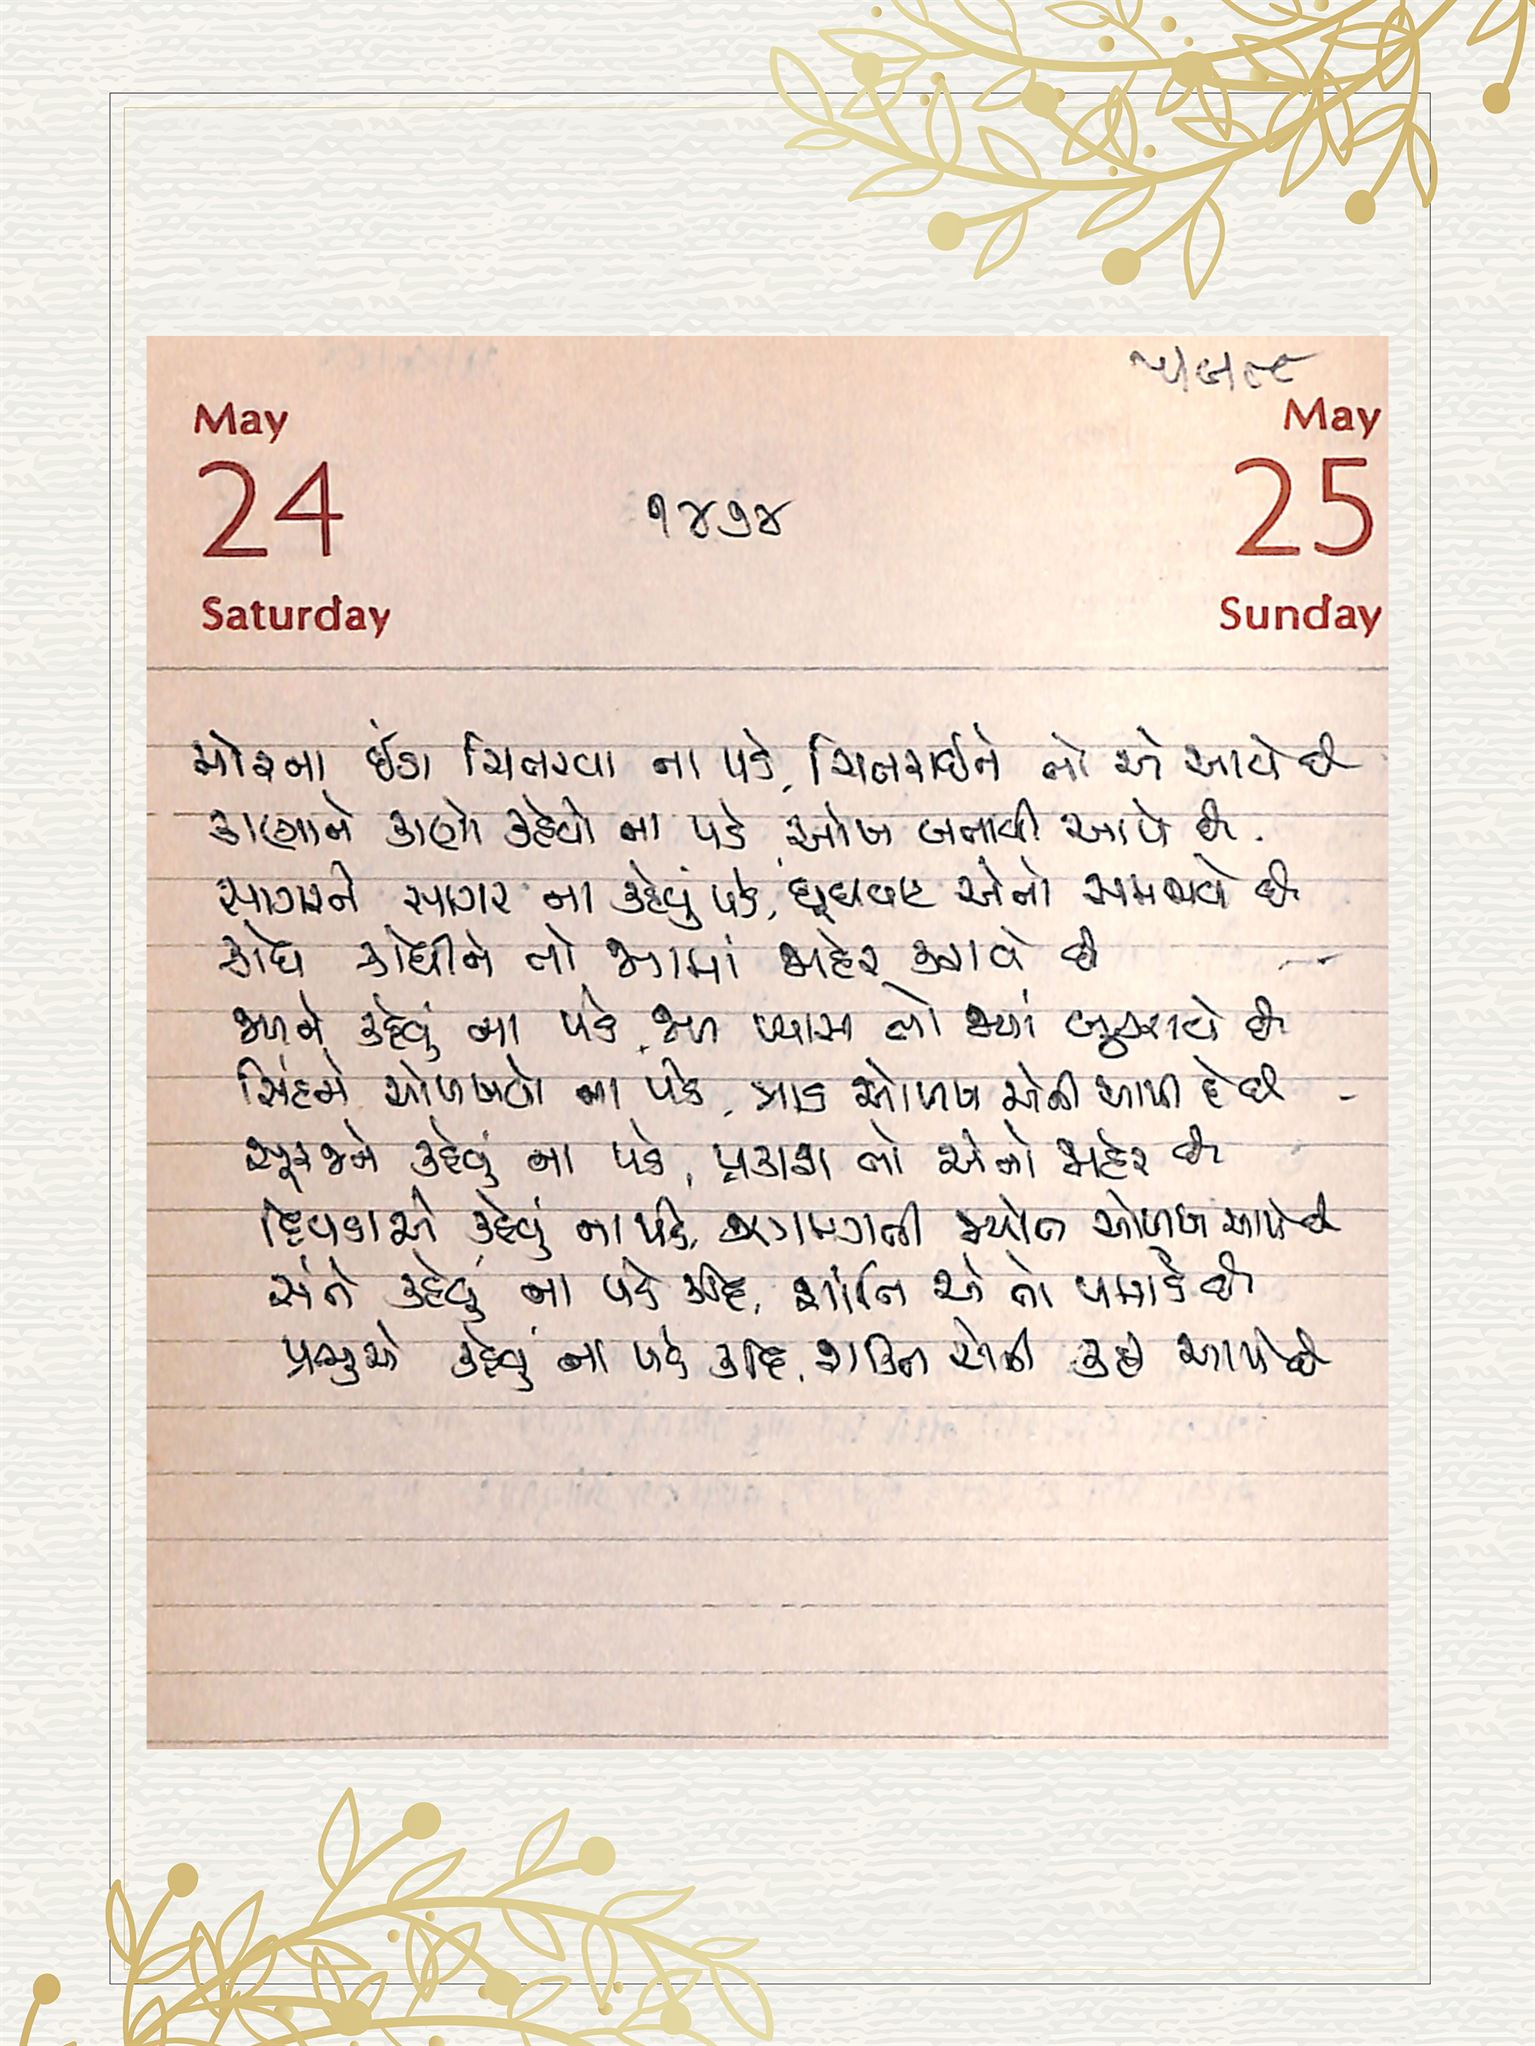 May
24
Saturday
૧૪૭૪
May
25
Sunday
મોરના ઈંડા ચિતરવા ના પડે, ચિતરાઈને તો એ આવે છે
કાણાને કાણો કહેવો ના પડે, આંખ બતાવી આપે છે.
સાગરને સાગર ના કહેવું પડે, ઘૂઘવાટ એનો સમજાવે છે
ક્રોધ ક્રોધીને તો જગમાં જાહેર કરાવે છે
જળને કહેવું ના પડે, જળ પ્યાસ તો જ્યાં બુઝાવે છે
સિંહને ઓળખવો ના પડે, ત્રાડ ઓળખ એની આપી દે છે
સૂરજને કહેવું ના પડે, પ્રકાશ તો એનો જાહેર છે
દિવડાએ કહેવું ના પડે, ઝગમગતી જ્યોત ઓળખ આપે છે
સંતે કહેવું ના પડે કદિ, શાંતિ એ તો પમાડે છે
પ્રભુએ કહેવું ના પડે કદિ, શક્તિ એની કહી આપે છે